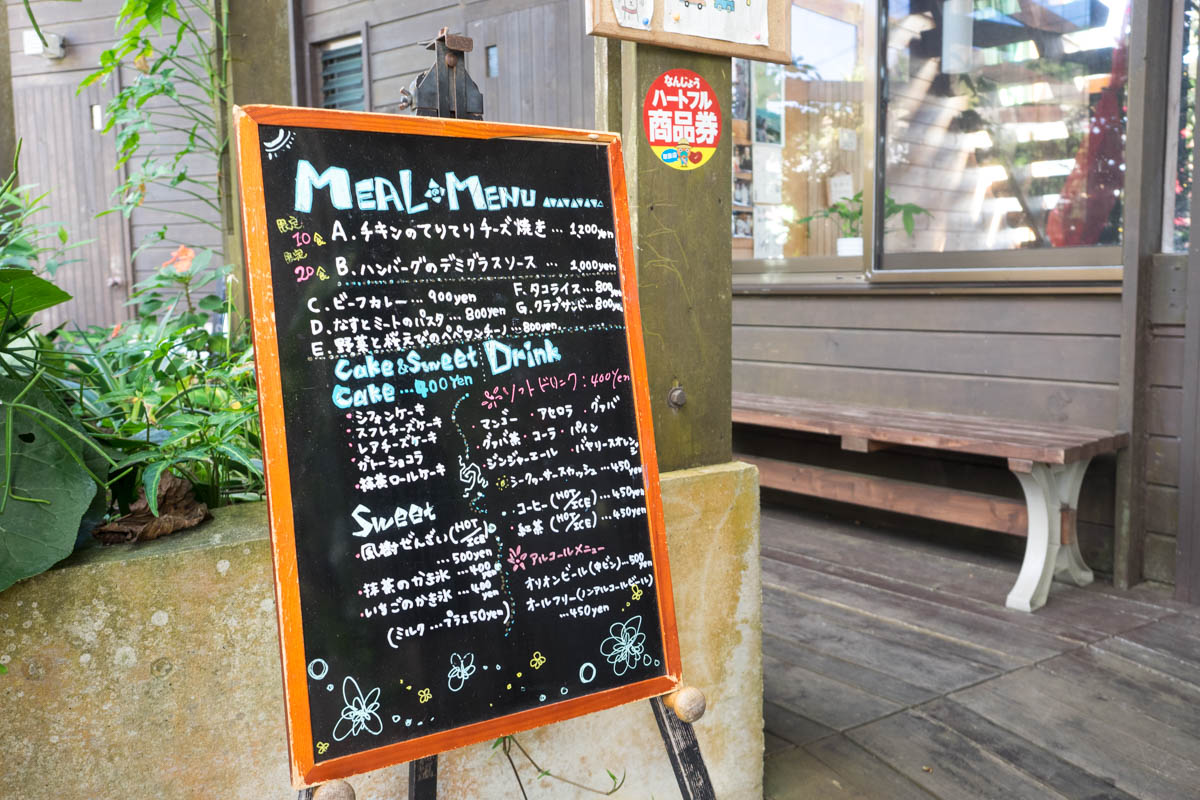 なんじょう
ハートフル
商品券
MEAL MENU
限定10食 A. チキンのてりてりチーズ焼き … 1,200yen
限定20食 B. ハンバーグのデミグラスソース … 1,000yen
C. ビーフカレー … 900yen
D. なすとミートのパスタ … 800yen
E. 野菜と桜えびのペペロンチーノ … 800yen
F. タコライス … 800yen
G. クラブサンド … 800yen
Cake & Sweet
Cake … 400yen
・シフォンケーキ
・スフレチーズケーキ
・レアチーズケーキ
・ガトーショコラ
・抹茶ロールケーキ
Sweet
・風樹ぜんざい (HOT/ICE)
… 500yen
・抹茶のかき氷 … 400yen
・いちごのかき氷 … 400yen
(ミルク … プラス50yen)
Drink
ソフトドリンク : 400yen
・マンゴー ・アセロラ ・グァバ
・グァバ茶 ・コーラ ・パイン
・ジンジャーエール ・バヤリースオレンジ
シークヮーサースカッシュ … 450yen
・コーヒー (HOT/ICE) … 450yen
・紅茶 (HOT/ICE) … 450yen
アルコールメニュー
オリオンビール (中ビン) … 500yen
オールフリー (ノンアルコールビール)
… 450yen